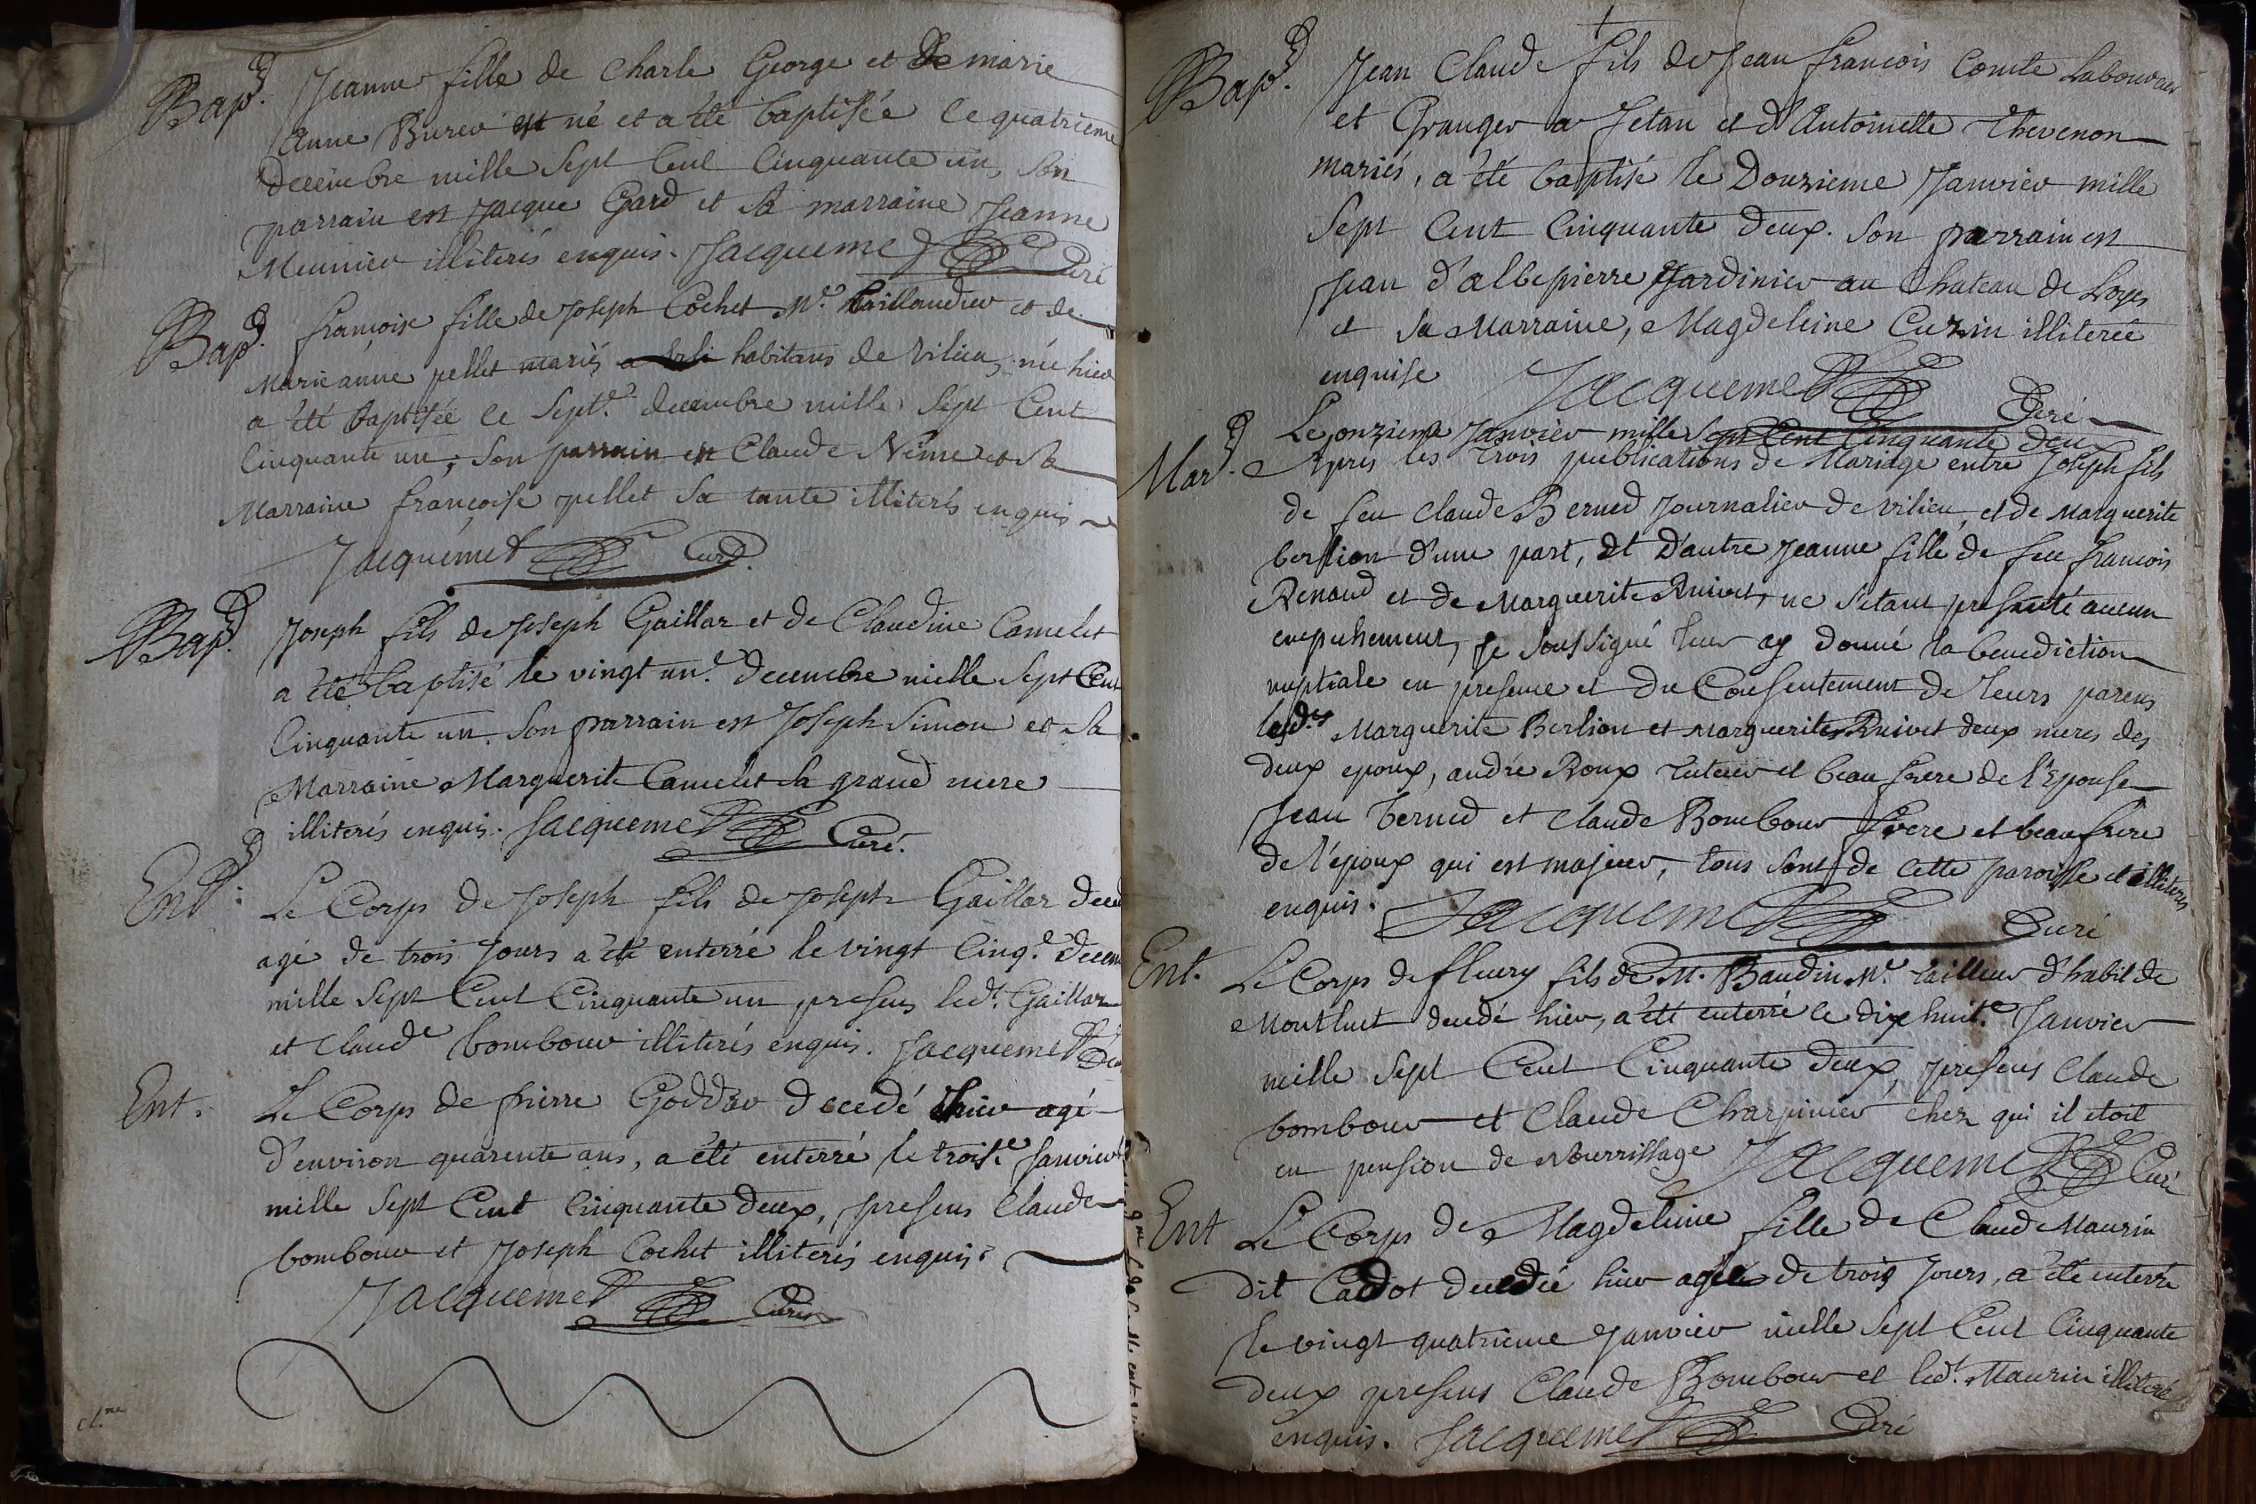 Bap.
Jeanne fille de Charle George et de marie
Anne Burer est né et a été baptisée le quatrieme
decembre mille Sept Cent Cinquante un, son
parrain est Jacque Gard et sa marraine Jeanne
Meunier illiterés enquis. Jacquemet Curé
Bap.
françoise fille de Joseph Cochet Me. taillandier et de
Marie anne pellet mariés habitans de vilieu, née hier
a été baptisée le Sept.e decembre mille Sept Cent
Cinquante un; Son parrain est Claude Néme et Sa
Marraine françoise pellet Sa tante illiterés enquis
Jacquemet Curé.
Bap.
Joseph fils de Joseph Gaillar et de Claudine Camelet
a été baptisé le vingt un.e decembre mille Sept Cent
Cinquante un. Son parrain est Joseph Simon et Sa
Marraine Marguerite Camelet Sa grand mere
illiterés enquis. Jacquemet Curé.
Ent.
Le Corps de Joseph fils de Joseph Gaillar
agé de trois Jours a été enterré le vingt Cinq.e
mille Sept Cent Cinquante un presens led.t Gaillar
et Claude bombour illiterés enquis. Jacquemet
Ent.
Le Corps de pierre decedé hier agé
d'environ quarente ans, a été enterré le trois.e Janvier
mille Sept Cent Cinquante deux, presens Claude
bombour et Joseph Cochet illiterés enquis.
Jacquemet Curé
Bap.
Jean Claude fils de Jean francois Comte Laboureur
et Granger a Jetan et d'Antoinette thevenon
mariés, a été baptisé le Douzieme Janvier mille
Sept Cent Cinquante deux. Son parrain est
Jean d'albepierre Jardinier au Chateau de Loyes
et Sa Marraine, Magdeleine Cuzin illiterée
enquise Jacquemet Curé
Le onzieme Janvier mille Sept Cent Cinquante deux
Mar.
Apres les trois publications de Mariage entre Joseph fils
de feu Claude Berned Journalier de vilieu, et de Marguerite
berlion d'une part, Et D'autre Jeanne fille de feu francois
Renaud et de Marguerite Ruivet, ne Setant presenté aucun
empechement, Je Soussigné leur ay donné la benediction
nuptiale en presence et du Consentement de leurs parens
lesd.es Marguerite Berlion et Marguerite Ruivet deux meres des
deux epoux, andré Roux tuteur et beau frere de l'Epouse
Jean berned et Claude Bombour frere et beau frere
de l'epoux qui est majeur, tous Sont de Cette paroisse et illiterés
enquis. Jacquemet Curé
Ent.
Le Corps de fleury fils de M. Baudin Me. tailleur d'habit de
Montluet decedé hier, a été enterré le dix huit.e Janvier
mille Sept Cent Cinquante deux, presens Claude
bombour et Claude Charpinier chez qui il etoit
en pension de Nourrissage Jacquemet Curé
Ent
Le Corps de Magdeleine fille de Claude Maurin
dit Cadot decedée hier agée de trois Jours, a été enterré
le vingt quatrieme Janvier mille Sept Cent Cinquante
deux presens Claude Bombour et led.t Maurin illiterés
enquis. Jacquemet Curé